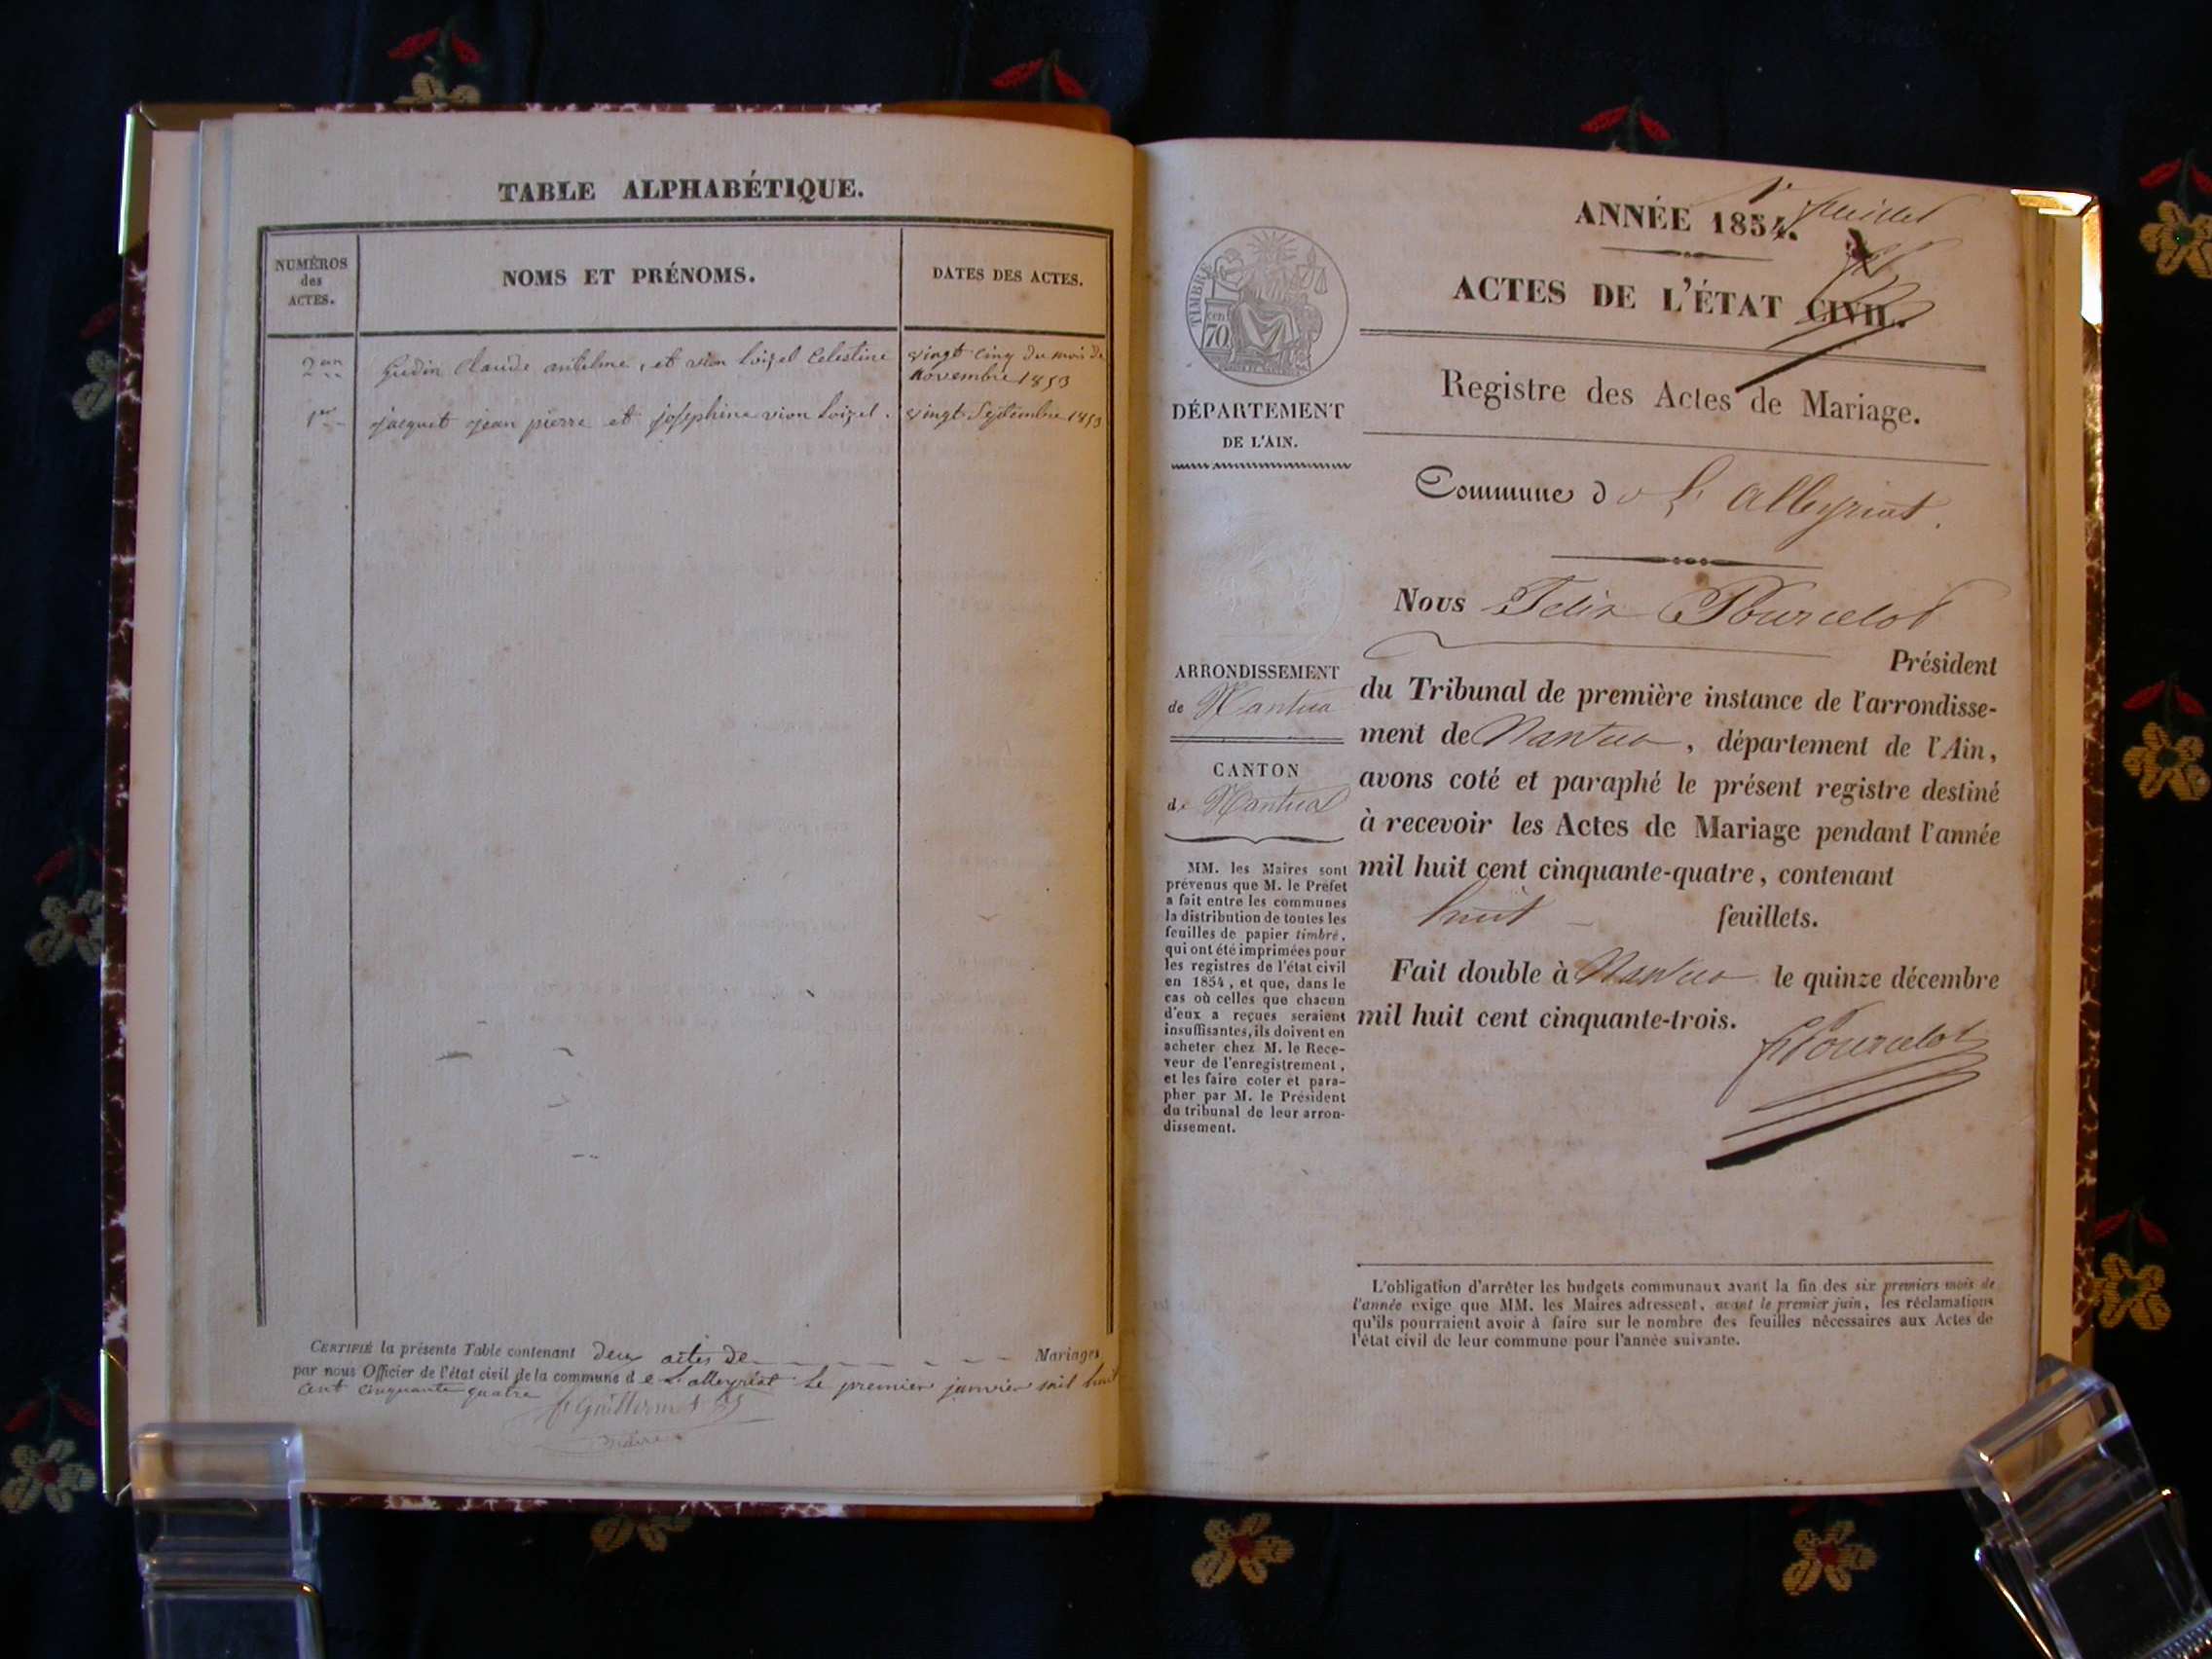 TABLE ALPHABÉTIQUE.
NUMÉROS
des
ACTES.
NOMS ET PRÉNOMS.
DATES DES ACTES.
Gudin Claude antelme, et vion Loizel Celestine
vingt cinq du mois de
novembre 1853
1er
jacquet jean pierre et josephine vion Loizel.
vingt Septembre 1853
CERTIFIÉ la présente Table contenant deux actes de Mariages,
par nous Officier de l'état civil de la commune de L'alleyriat Le premier janvier mil huit
cent cinquante quatre
maire
1er feuillet
ANNÉE 1854.
ACTES DE L'ÉTAT CIVIL.
Registre des Actes de Mariage.
Commune de L'alleyriat.
Nous Felix Pourcelot
Président
du Tribunal de première instance de l'arrondisse-
ment de Nantua, département de l'Ain,
avons coté et paraphé le présent registre destiné
à recevoir les Actes de Mariage pendant l'année
mil huit cent cinquante-quatre, contenant
huit feuillets.
Fait double à Nantua le quinze décembre
mil huit cent cinquante-trois.
F Pourcelot
TIMBRE
70 cen
DÉPARTEMENT
DE L'AIN.
ARRONDISSEMENT
de Nantua
CANTON
de Nantua
MM. les Maires sont
prévenus que M. le Préfet
a fait entre les communes
la distribution de toutes les
feuilles de papier timbré,
qui ont été imprimées pour
les registres de l'état civil
en 1854, et que, dans le
cas où celles que chacun
d'eux a reçues seraient
insuffisantes, ils doivent en
acheter chez M. le Rece-
veur de l'enregistrement,
et les faire coter et para-
pher par M. le Président
du tribunal de leur arron-
dissement.
L'obligation d'arrêter les budgets communaux avant la fin des six premiers mois de
l'année exige que MM. les Maires adressent, avant le premier juin, les réclamations
qu'ils pourraient avoir à faire sur le nombre des feuilles nécessaires aux Actes de
l'état civil de leur commune pour l'année suivante.